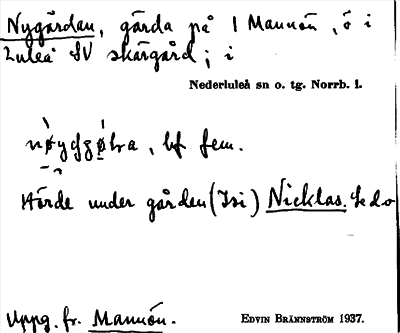 Nygårdan, gärda på 1 Mannön, ö i
Luleå SV skärgård; i
Nederluleå sn o. tg. Norrb. l.
, bf fem.
Hörde under gården (Isi) Nicklas. Se do
Uppg. fr. Mannön.
EDVIN BRÄNNSTRÖM 1937.